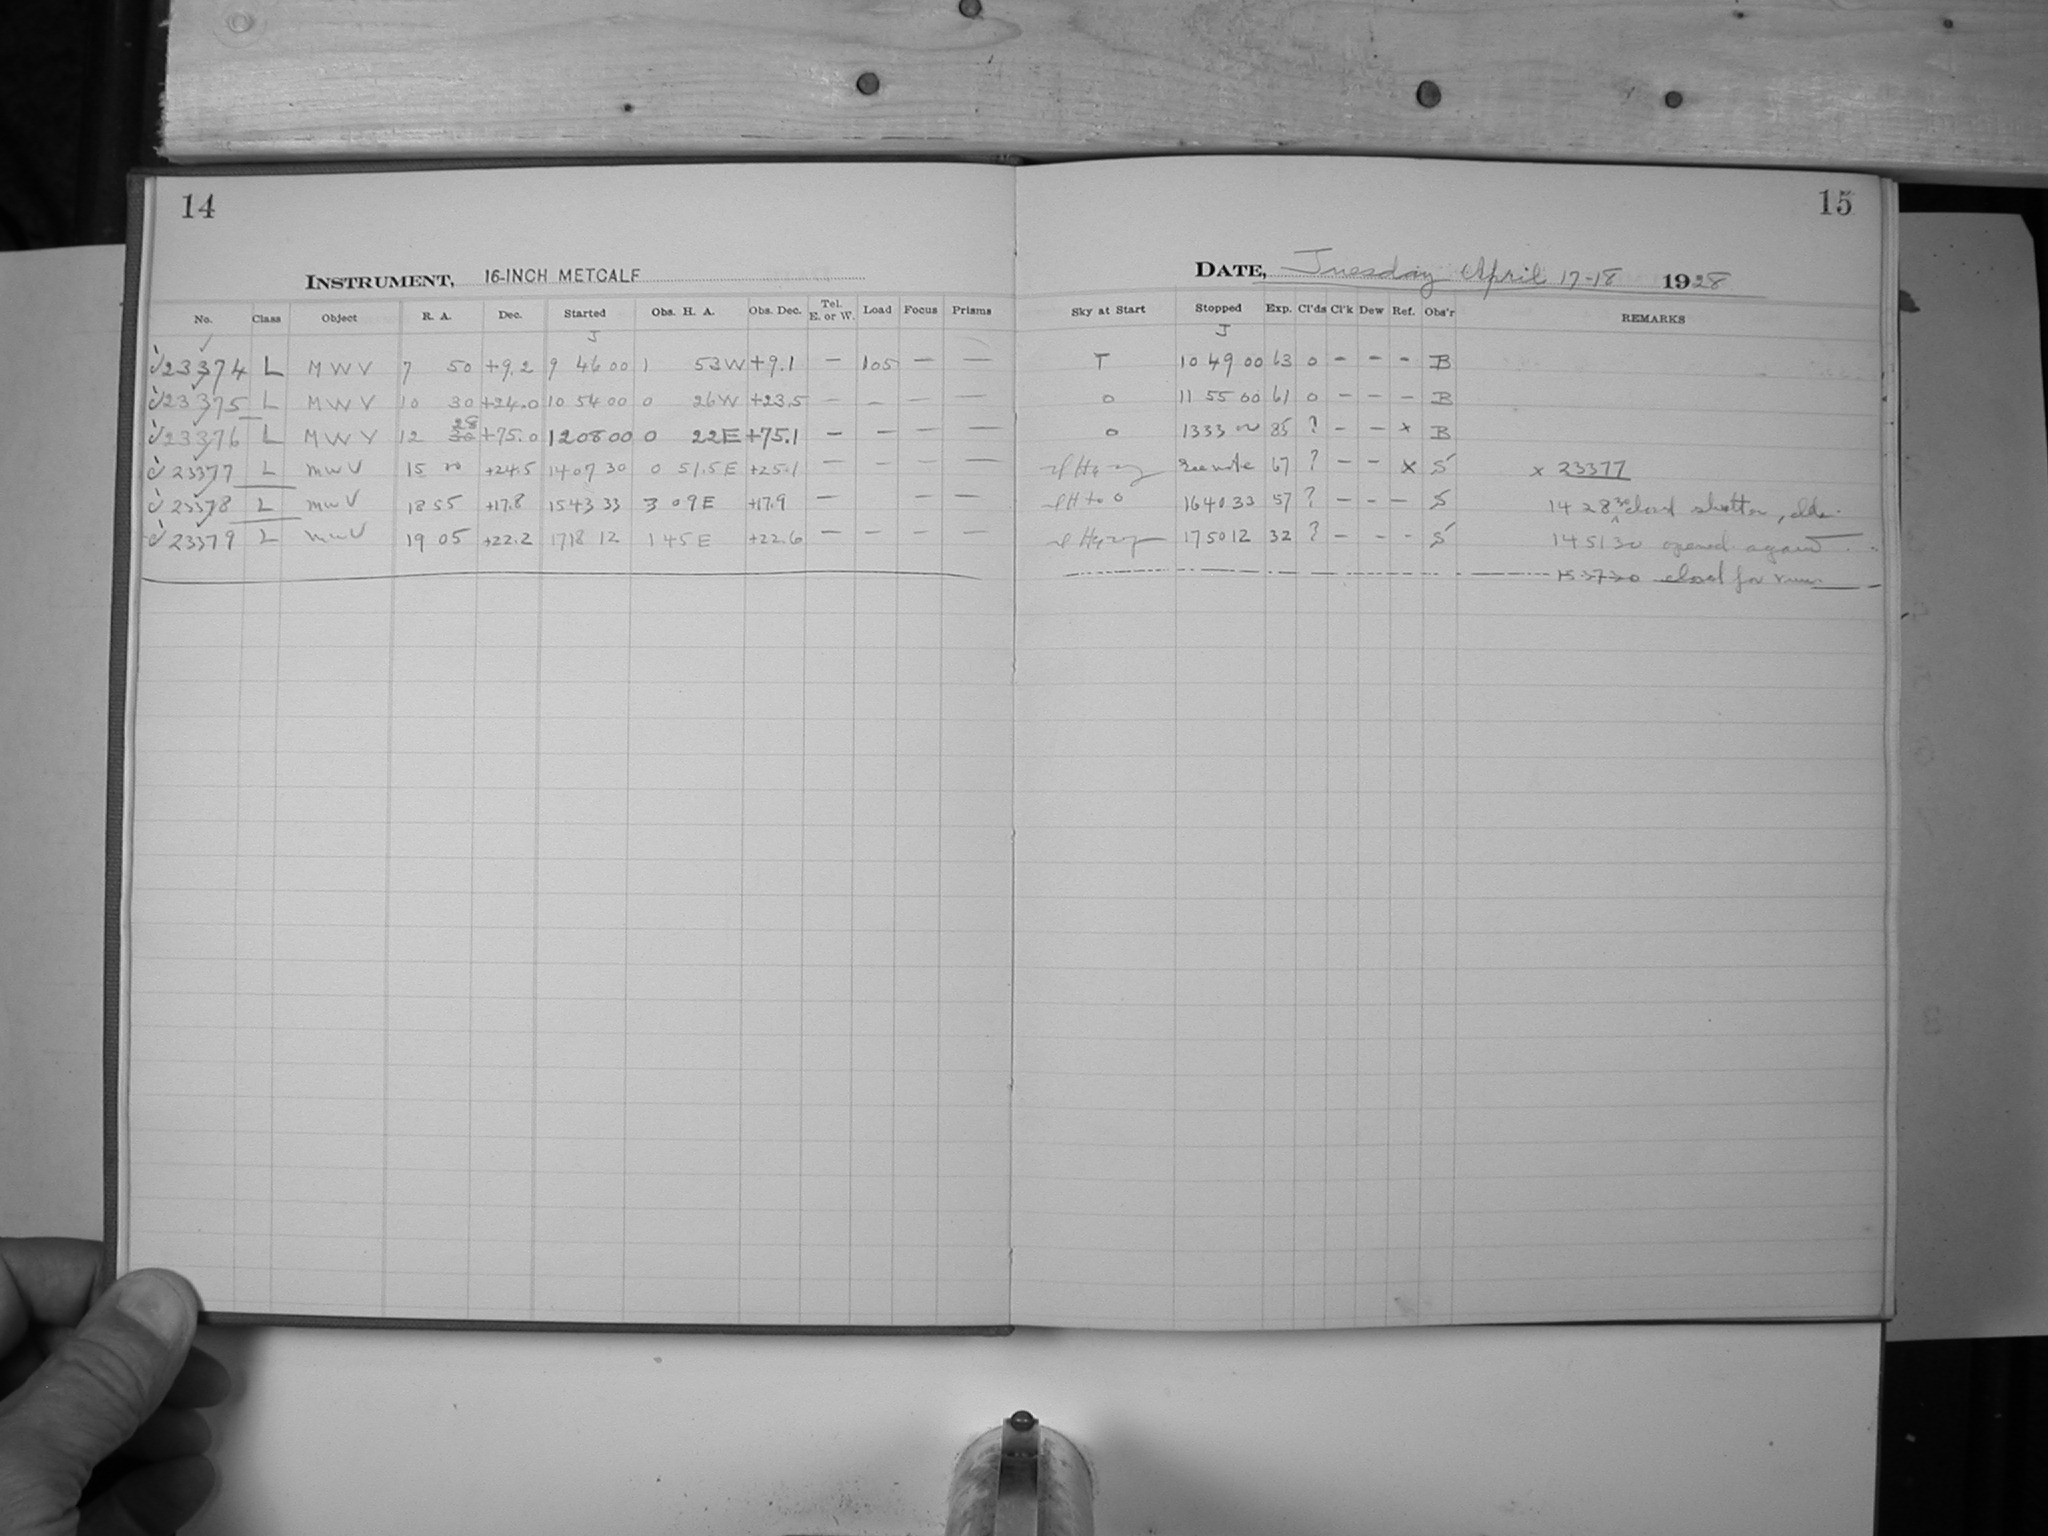 14
INSTRUMENT, 16-INCH METCALF
No. Class Object R. A. Dec. Started Obs. H. A. Obs. Dec. Tel. E. or W. Load Focus Prisms
J
23374 L M W V 7 50 +9.2 9 46 00 1 53 W +9.1 — 105 — —
23375 L M W V 10 30 +24.0 10 54 00 0 26 W +23.5 — — — —
28
23376 L M W V 12 30 +75.0 12 08 00 0 22 E +75.1 — — — —
23377 L MWV 15 00 +24.5 14 07 30 0 51.5 E +25.1 — — — —
23378 L MWV 18 55 +17.8 15 43 33 3 09 E +17.9 — — — —
23379 L MWV 19 05 +22.2 17 18 12 1 45 E +22.6 — — — —
15
DATE, Tuesday April 17-18 1928
Sky at Start Stopped Exp. Cl'ds Cl'k Dew Ref. Obs'r REMARKS
J
T 10 49 00 63 0 - - - B
0 11 55 00 61 0 - - - B
0 13 33 00 85 ? - - x B
See note 67 ? - - x S x 23377
to 0 16 40 33 57 ? - - - S 14 28 30 closed shutter, clds.
17 50 12 32 ? - - - S 14 51 30 opened again
15 37 30 closed for